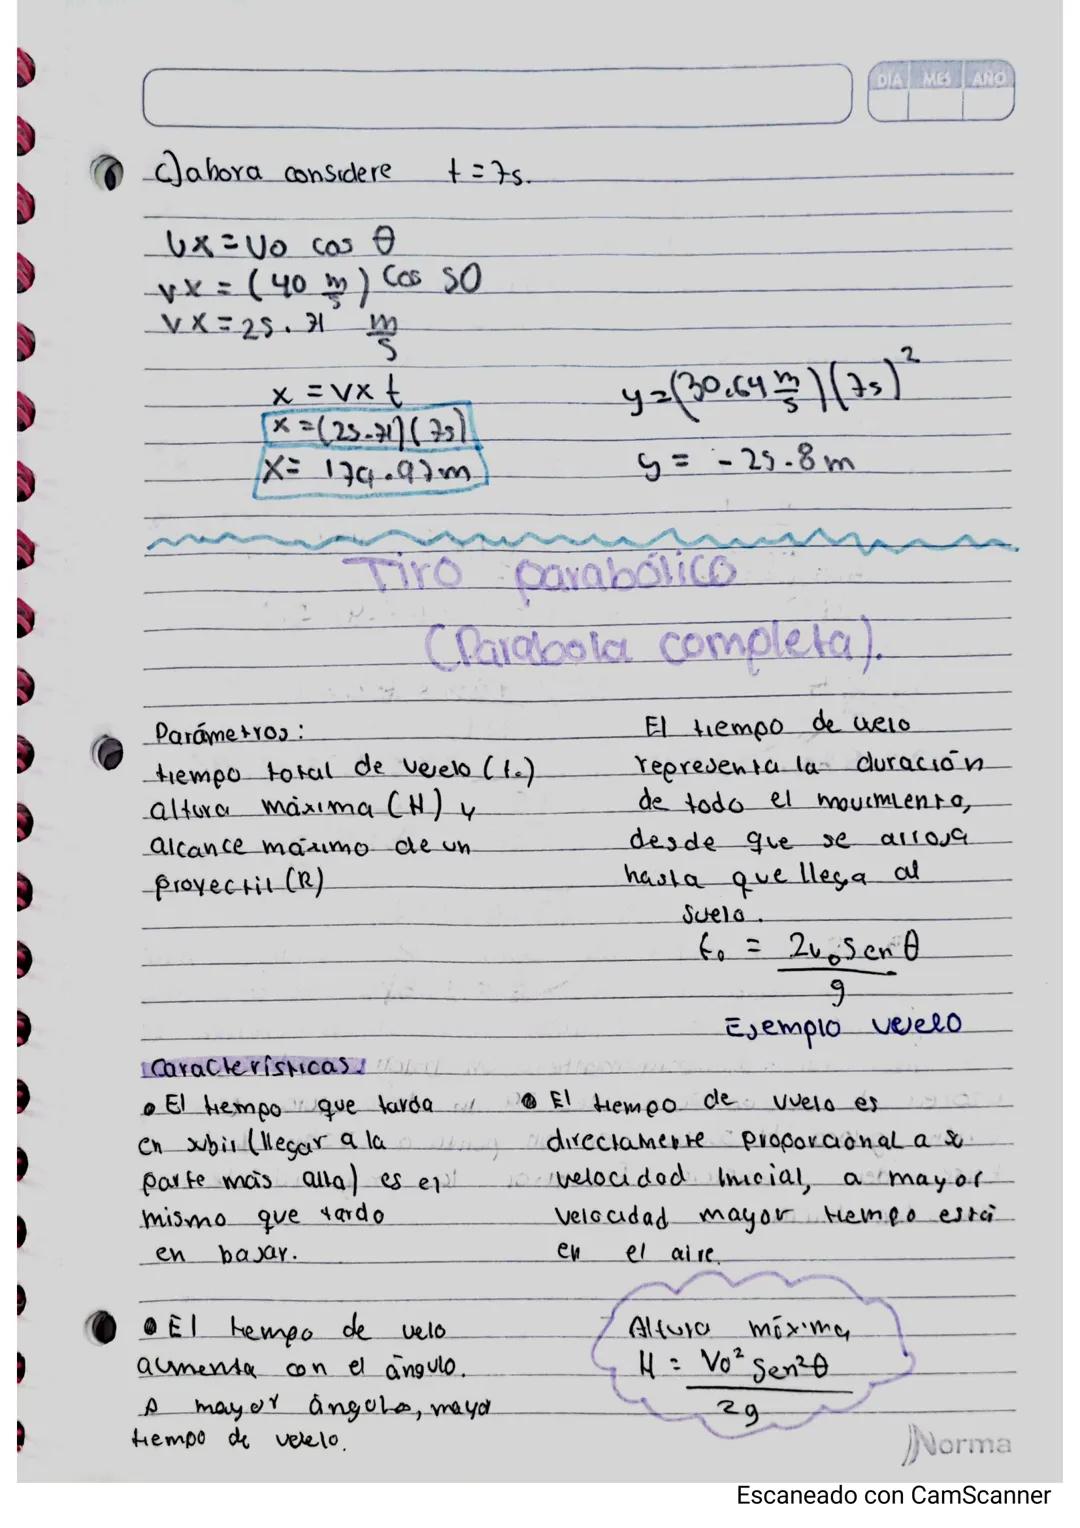 DIA MES AÑO
c) ahora considere t = 7s.
Vx = Vo cos θ
vx = (40 m/s) Cos 50
Vx = 25.71 m/s
x = Vx t
x = (25.71)(7s)
X = 179.97m
y = (30.64 m/s)(7s)²
y = -25.8m
Tiro parabólico
(Parabola completa).
Parámetros:
tiempo total de vuelo (to)
altura máxima (H) y
alcance máximo de un
proyectil (R)
El tiempo de uelo
representa la duración
de todo el movimiento,
desde que se arroja
hasta que llega al
suelo.
to = 2v₀Sen θ / g
Ejemplo vuelo
Características:
• El tiempo que tarda
en subir (llegar a la
parte más alta) es el
mismo que tardo
en bajar.
• El tiempo de vuelo es
directamente proporcional a su
velocidad inicial, a mayor
velocidad mayor tiempo está
en el aire.
• El tiempo de velo
aumenta con el ángulo.
A mayor ángulo, mayor
tiempo de vuelo.
Altura máxima
H = Vo² Sen²θ / 2g
Norma
Escaneado con CamScanner